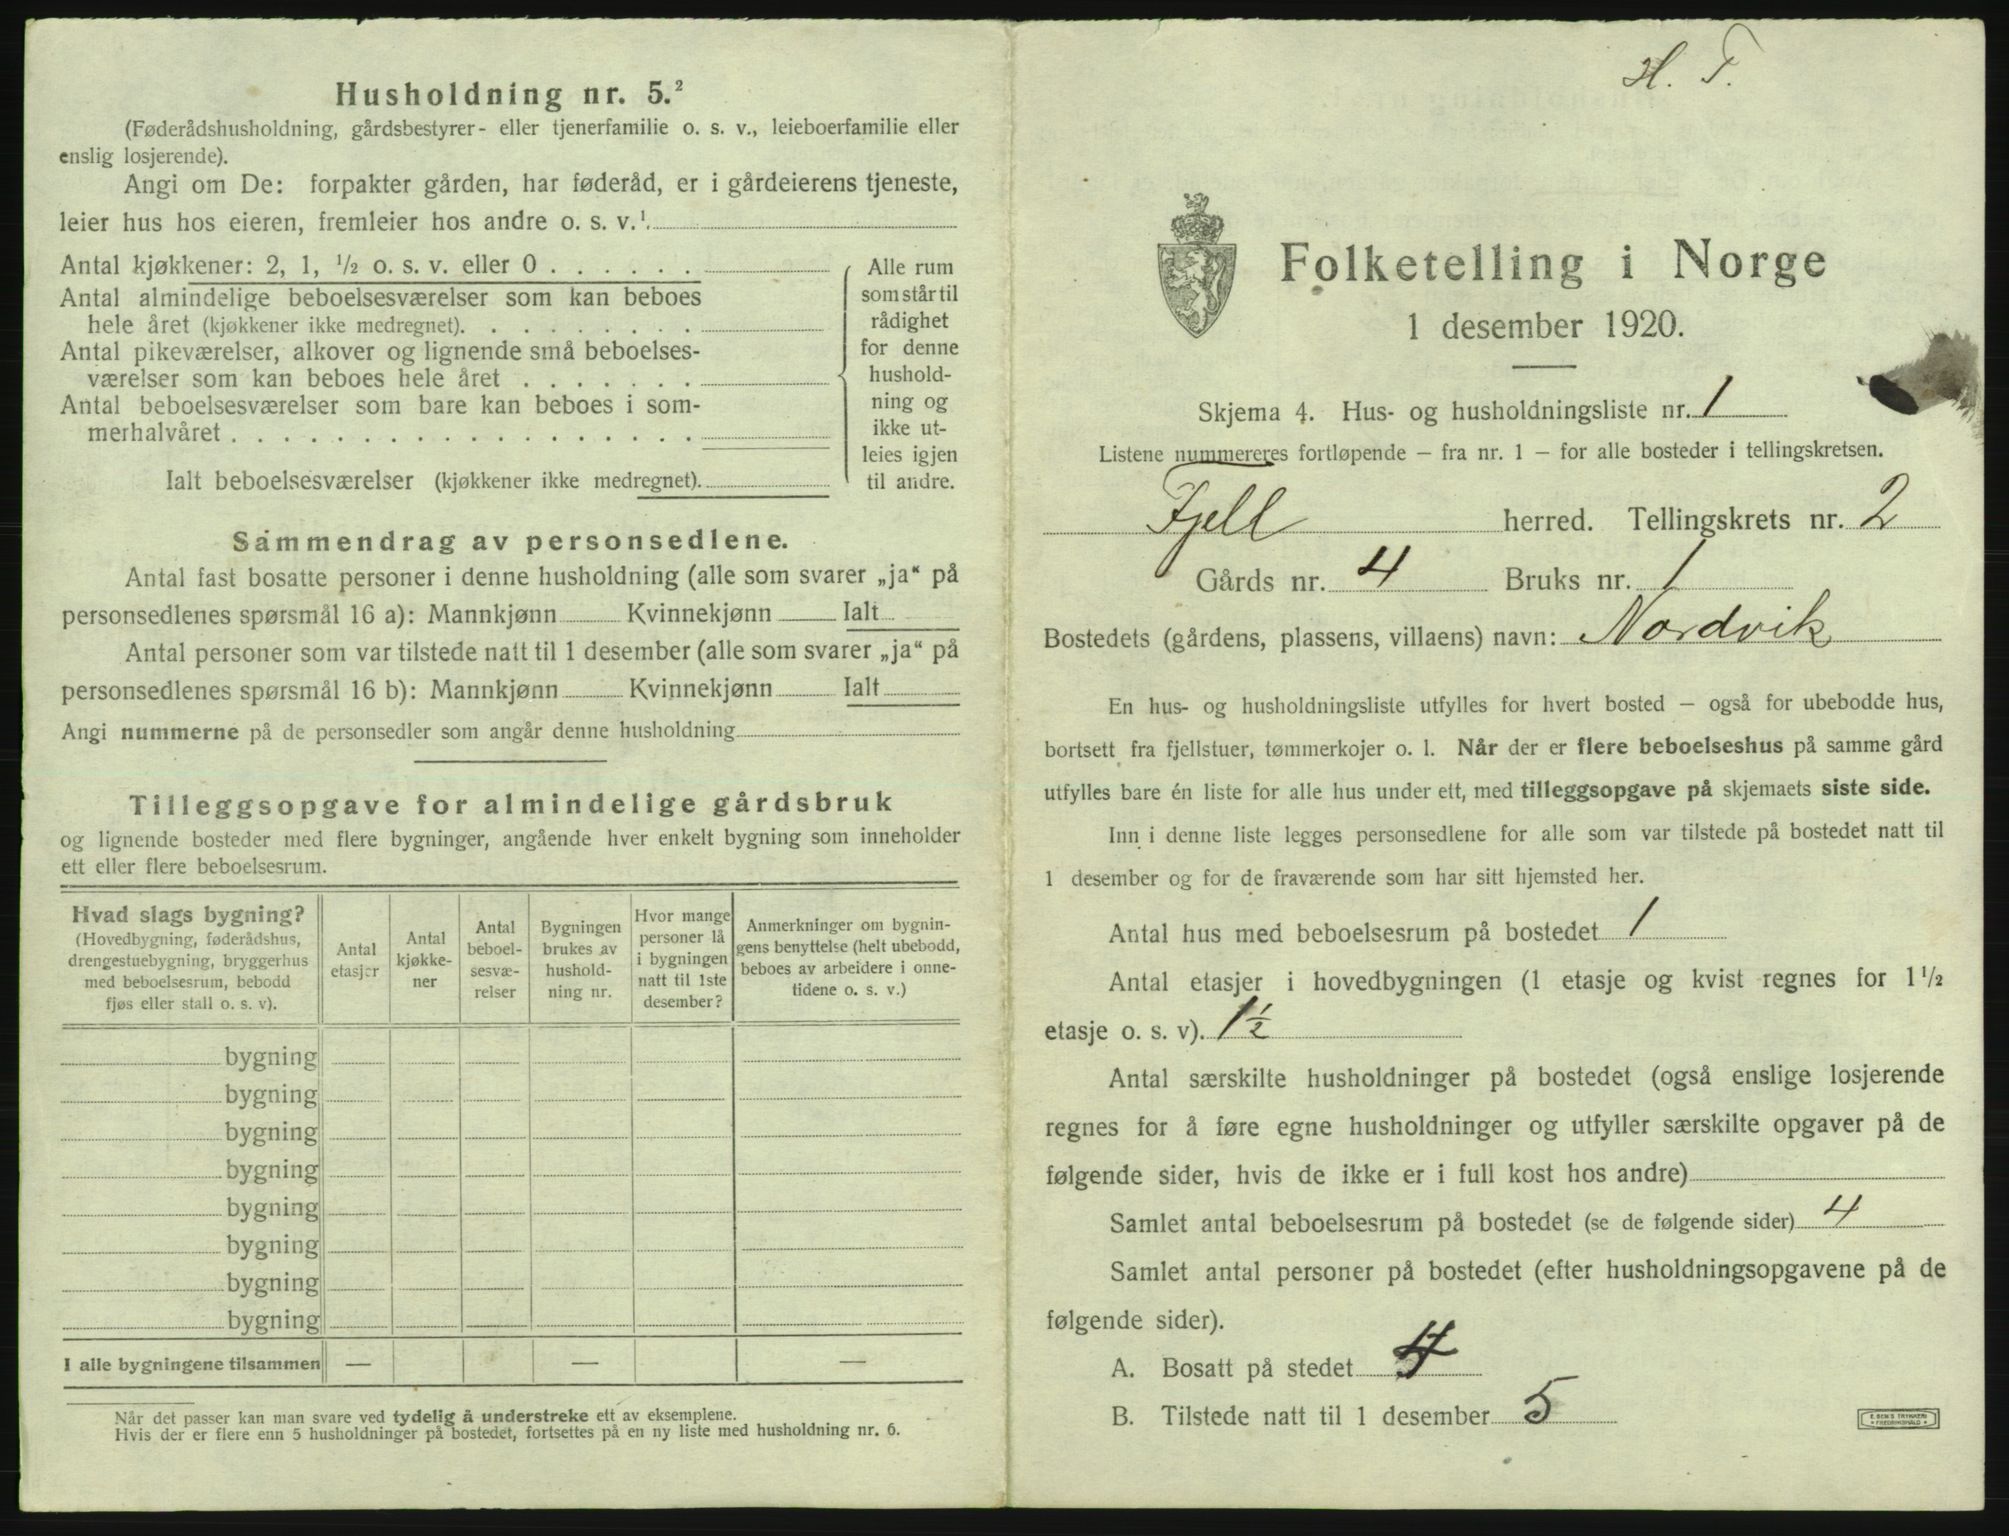 Husholdning nr. 5.²
(Føderådshusholdning, gårdsbestyrer- eller tjenerfamilie o. s. v., leieboerfamilie eller
enslig losjerende).
Angi om De: forpakter gården, har føderåd, er i gårdeierens tjeneste,
leier hus hos eieren, fremleier hos andre o. s. v.¹.
Antal kjøkkener: 2, 1, ½ o. s. v. eller 0 . . . . . .
Antal almindelige beboelsesværelser som kan beboes
hele året (kjøkkener ikke medregnet). . . . . . . . .
Antal pikeværelser, alkover og lignende små beboelses-
værelser som kan beboes hele året . . . . . . .
Antal beboelsesværelser som bare kan beboes i som-
merhalvåret . . . . . . . . . . . . . . . . . .
Ialt beboelsesværelser (kjøkkener ikke medregnet).
Alle rum
som står til
rådighet
for denne
hushold-
ning og
ikke ut-
leies igjen
til andre.
Sammendrag av personsedlene.
Antal fast bosatte personer i denne husholdning (alle som svarer „ja“ på
personsedlenes spørsmål 16 a): Mannkjønn Kvinnekjønn Ialt
Antal personer som var tilstede natt til 1 desember (alle som svarer „ja“ på
personsedlenes spørsmål 16 b): Mannkjønn Kvinnekjønn Ialt
Angi nummerne på de personsedler som angår denne husholdning
Tilleggsopgave for almindelige gårdsbruk
og lignende bosteder med flere bygninger, angående hver enkelt bygning som inneholder
ett eller flere beboelsesrum.
Hvad slags bygning?
(Hovedbygning, føderådshus,
drengestuebygning, bryggerhus
med beboelsesrum, bebodd
fjøs eller stall o. s. v).
Antal
etasjer
Antal
kjøkke-
ner
Antal
beboel-
sesvæ-
relser
Bygningen
brukes av
hushold-
ning nr.
Hvor mange
personer lå
i bygningen
natt til 1ste
desember?
Anmerkninger om bygnin-
gens benyttelse (helt ubebodd,
beboes av arbeidere i onne-
tidene o. s. v.)
bygning
bygning
bygning
bygning
bygning
bygning
bygning
bygning
I alle bygningene tilsammen — — —
Når det passer kan man svare ved tydelig å understreke ett av eksemplene.
Hvis der er flere enn 5 husholdninger på bostedet, fortsettes på en ny liste med husholdning nr. 6.
H. T.
Folketelling i Norge
1 desember 1920.
Skjema 4. Hus- og husholdningsliste nr. 1
Listene nummereres fortløpende — fra nr. 1 — for alle bosteder i tellingskretsen.
Fjell herred. Tellingskrets nr. 2
Gårds nr. 4 Bruks nr. 1
Bostedets (gårdens, plassens, villaens) navn: Nordvik
En hus- og husholdningsliste utfylles for hvert bosted — også for ubebodde hus,
bortsett fra fjellstuer, tømmerkojer o. l. Når der er flere beboelseshus på samme gård
utfylles bare én liste for alle hus under ett, med tilleggsopgave på skjemaets siste side.
Inn i denne liste legges personsedlene for alle som var tilstede på bostedet natt til
1 desember og for de fraværende som har sitt hjemsted her.
Antal hus med beboelsesrum på bostedet 1
Antal etasjer i hovedbygningen (1 etasje og kvist regnes for 1½
etasje o. s. v). 1½
Antal særskilte husholdninger på bostedet (også enslige losjerende
regnes for å føre egne husholdninger og utfyller særskilte opgaver på de
følgende sider, hvis de ikke er i full kost hos andre)
Samlet antal beboelsesrum på bostedet (se de følgende sider) 4
Samlet antal personer på bostedet (efter husholdningsopgavene på de
følgende sider).
A. Bosatt på stedet 4
B. Tilstede natt til 1 desember 5